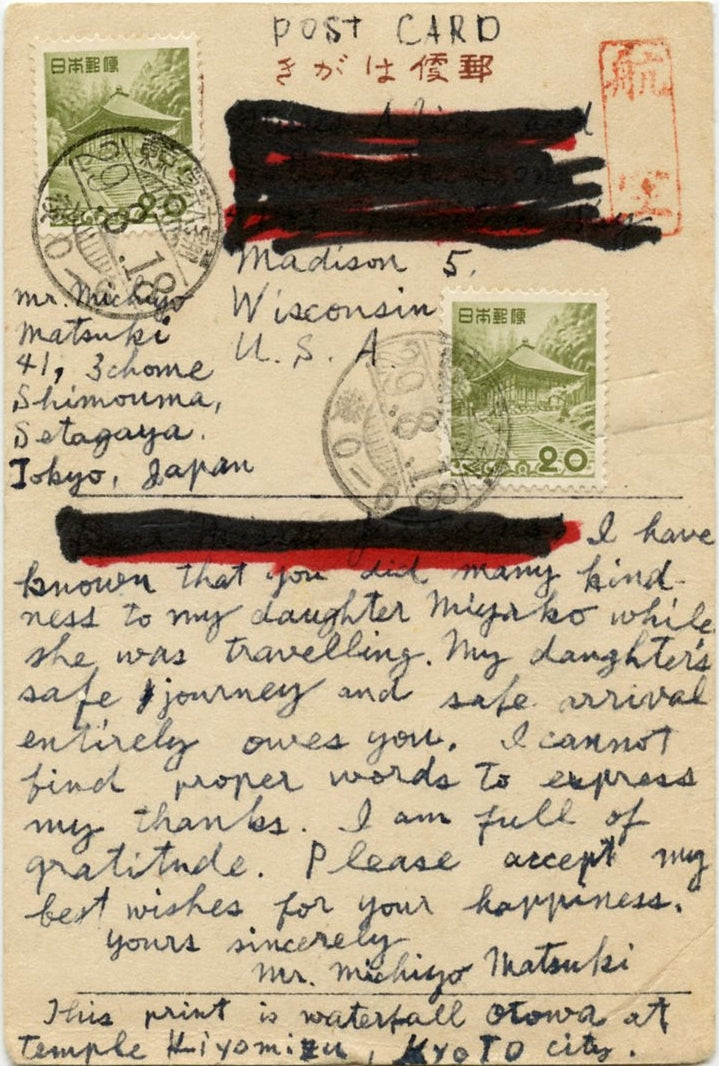 POST CARD
きがは便郵
航空
日本郵便
20
29.8.18
Madison 5.
Wisconsin
U. S. A.
Mr. Michiyo
Matsuki
41, 3chome
Shimouma,
Setagaya.
Tokyo, Japan
日本郵便
20
29.8.18
I have
known that you did many kind-
ness to my daughter Miyako while
she was travelling. My daughter's
safe journey and safe arrival
entirely owes you. I cannot
find proper words to express
my thanks. I am full of
gratitude. Please accept my
best wishes for your happiness.
yours sincerely
Mr. Michiyo Matsuki
This print is waterfall Otowa at
Temple Kiyomizu, KyOTO city.